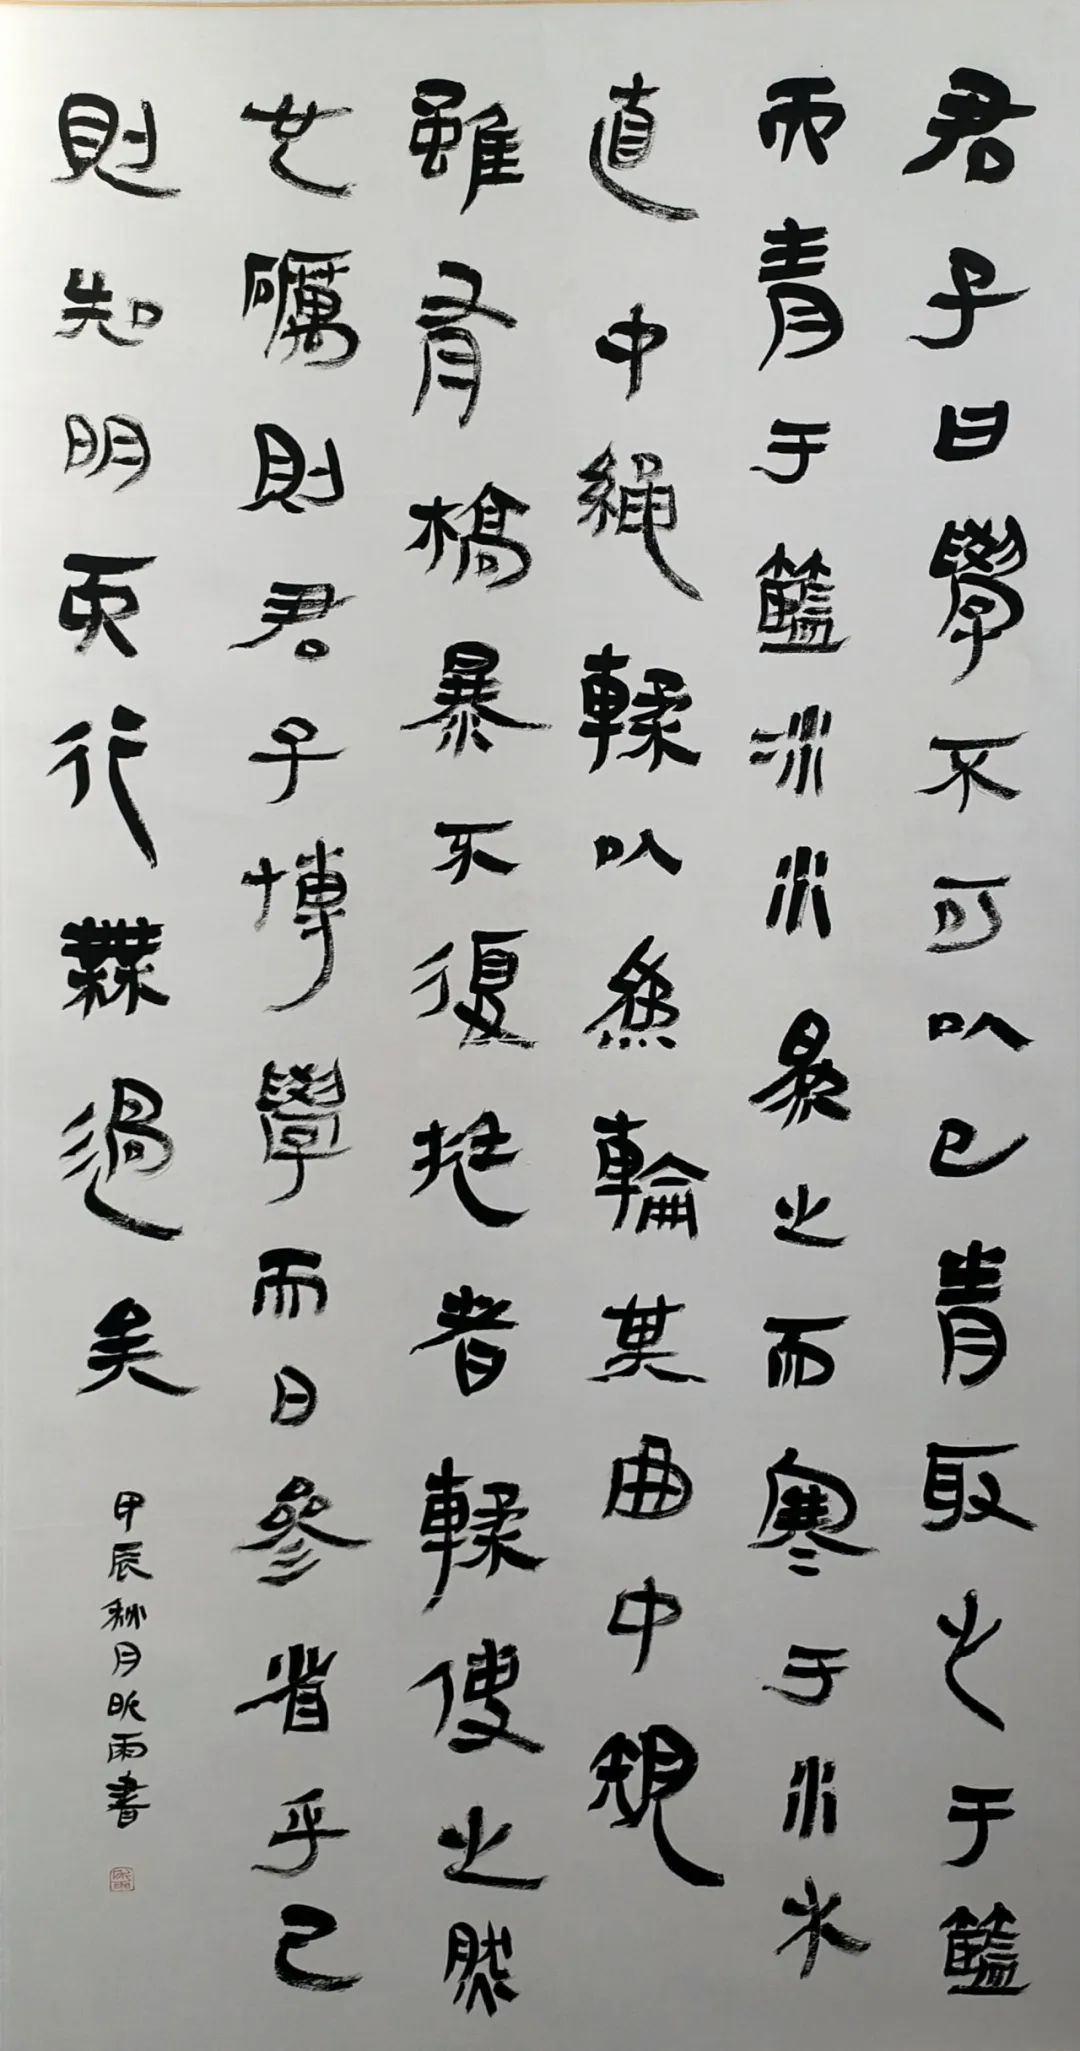 君子曰學不可以已青取之于籃
而青于籃冰水為之而寒于水木
直中繩輮以為輪其曲中規
雖有槁暴不復挺者輮使之然
也礪則君子博學而日參省乎己
則知明而行無過矣
甲辰秋月昕雨書